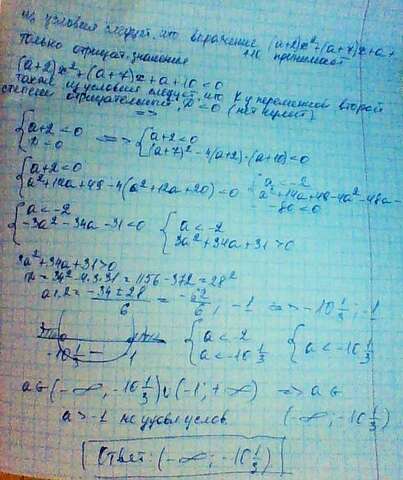 Из условия следует, что выражение (a+2)x²+(a+7)x+a+
+10 принимает
только отрицат. значение
(a+2)x²+(a+7)x+a+10<0
также из условия следует, что k у переменной второй
степени отрицательный, D<0 (нет нулей)
=>
{a+2<0 {a+2<0
D<0 <=> (a+7)²-4(a+2)·(a+10)<0
{a+2<0 {a<-2
a²+14a+49-4(a²+12a+20)<0 a²+14a+49-4a²-48a-
-80<0
{a<-2 {a<-2
-3a²-34a-31<0 3a²+34a+31>0
3a²+34a+31>0
D=34²-4·3·31=1156-372=28²
a1,2=-34±28/6=-62/6; -1 => -10 1/3; -1
-10 1/3 -1
{a<-2 {a<-10 1/3
a<-10 1/3
a∈(-∞; -10 1/3)∪(-1;+∞) => a∈
a>-1 не удовл услов. (-∞; -10 1/3)
Ответ: (-∞; -10 1/3)